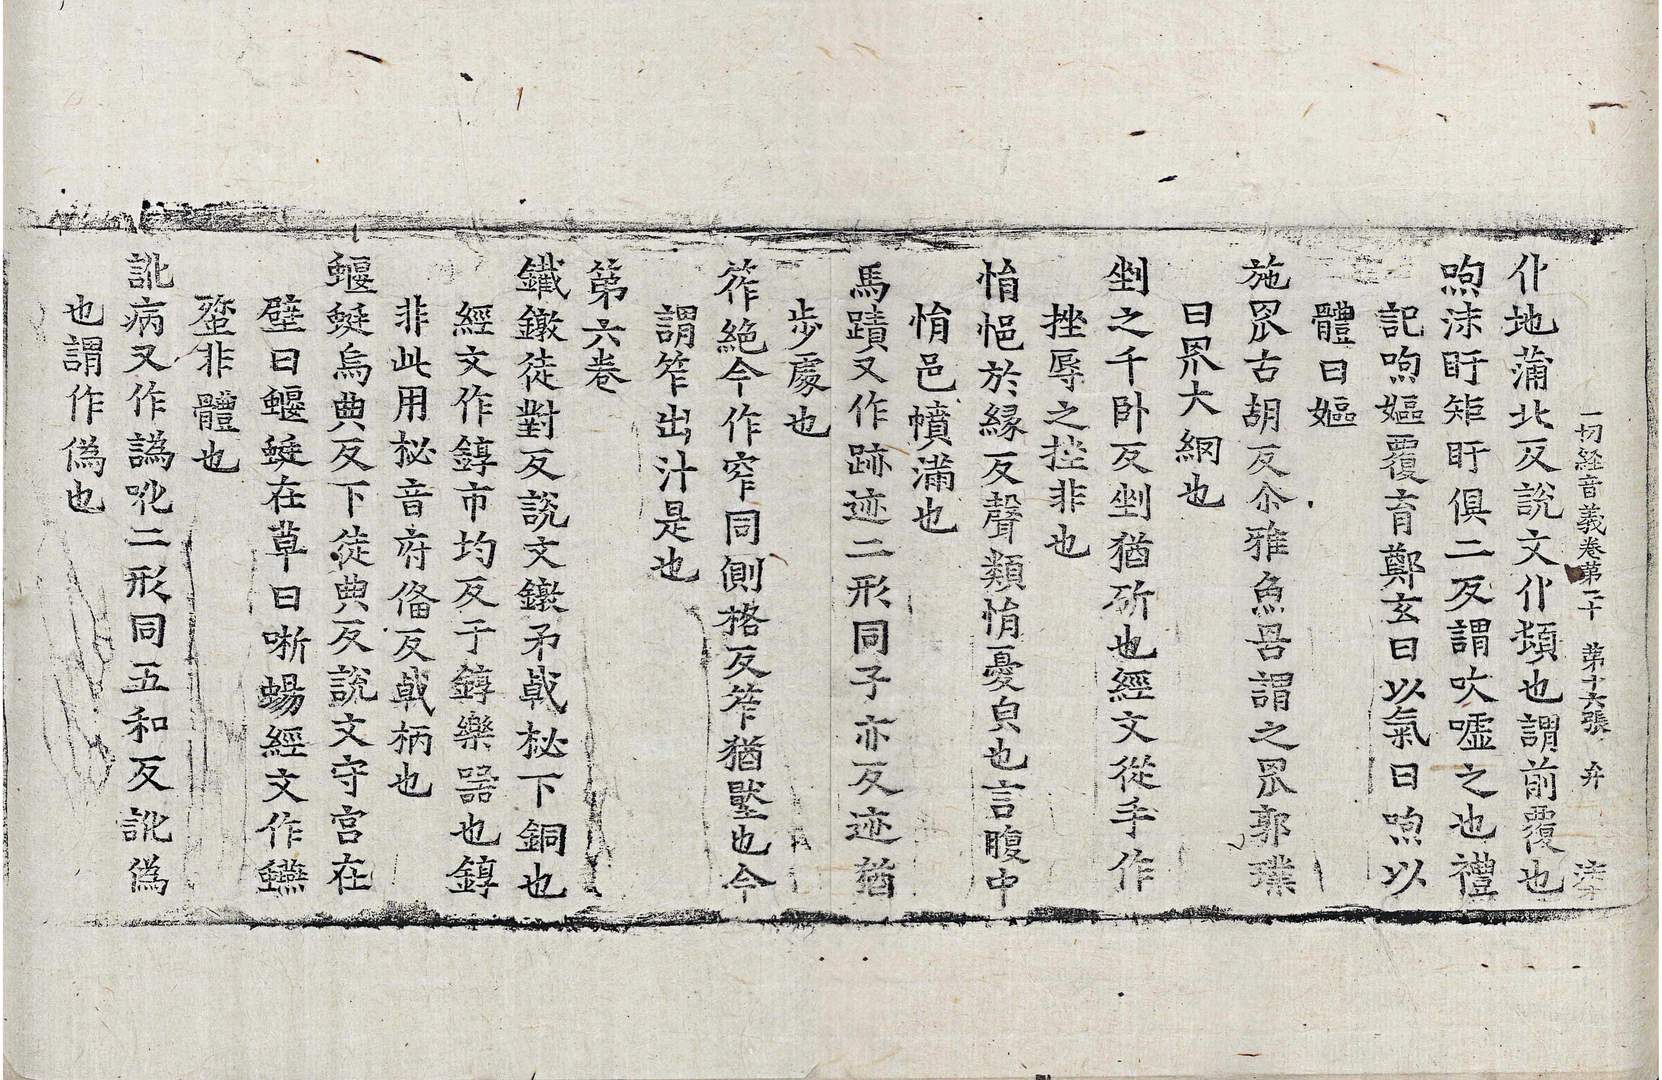 一切経音義卷第二十 第十六張 弁
仆地蒲北反說文仆頓也謂前覆也
喣沫盱矩盱俱二反謂吹噓之也禮
記喣嫗覆育鄭玄曰以氣曰喣以
體曰嫗
施罛古胡反尒雅魚罟謂之罛郭璞
曰罛大網也
剉之千卧反剉猶斫也經文從手作
挫辱之挫非也
悁悒於緣反聲類悁憂皃也言腹中
悁邑憤滿也
馬蹟又作跡迹二形同子亦反迹猶
步處也
筰絶今作窄同側格反笮猶壓也今
謂笮出汁是也
第六卷
鐵鐓徒對反說文鐓矛戟柲下銅也
經文作錞市均反于錞樂器也錞
非此用柲音府俻反戟柄也
蝘蜓烏典反下徒典反說文守宮在
壁曰蝘蜓在草曰蜥蜴經文作
蛩非體也
訛病又作譌吪二形同五和反訛僞
也謂作僞也